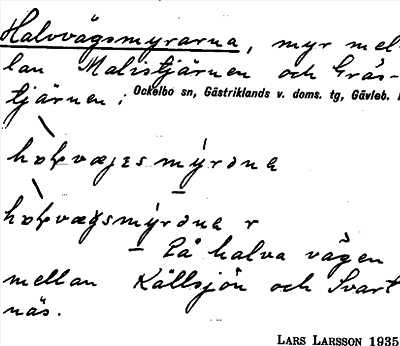 Halvvägsmyrarna, myr mel-
lan Malistjärnen och Gräs-
tjärnen; Ockelbo sn, Gästriklands v. doms. tg, Gävleb.
mýrəna
mýrəna r
– På halva vägen
mellan Källsjön och Svart
näs.
LARS LARSSON 1935